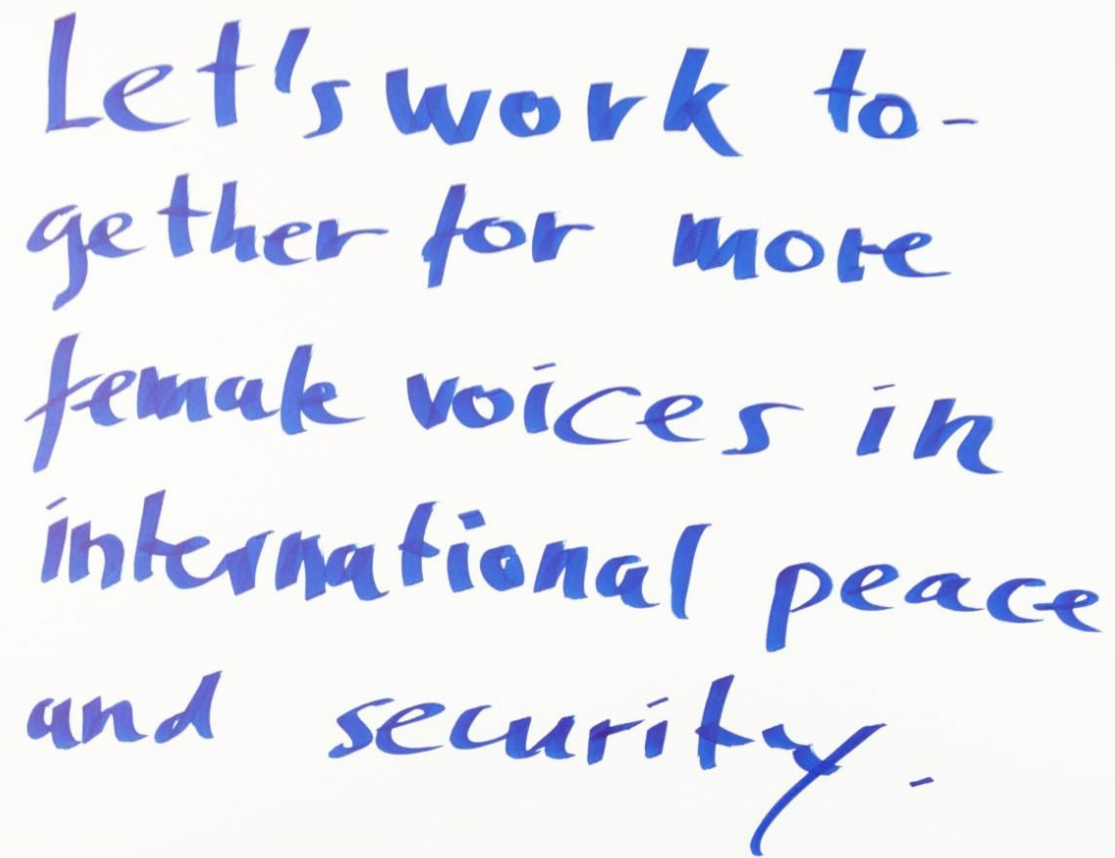 Let's work to-
gether for more
female voices in
international peace
and security.